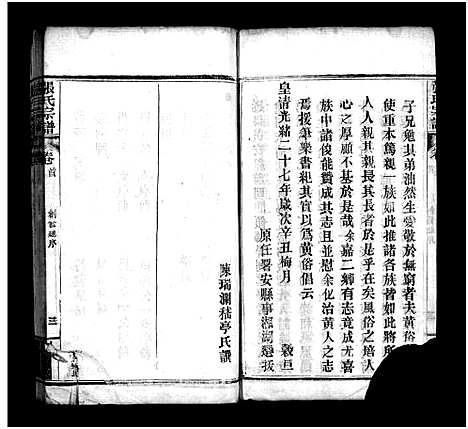 子兄勉其弟油然生愛敬於無窮者夫黃俗
使重本篤親一族如此推諸各族皆如此將
人人親其親長其長者於是乎在矣風俗之培人
心之厚顧不基於是哉余嘉二鄉有志竟成尤喜
族中諸俊能贊成其志且並慰余化治黃人之志
焉援筆樂書組其宜以為黃俗倡云
皇清光緒二十七年歲次辛丑梅月 穀旦
原任署安縣事湘湖選拔
陳瑞瀾嵇亭氏譔
張氏宗譜
卷首
創修總序
三